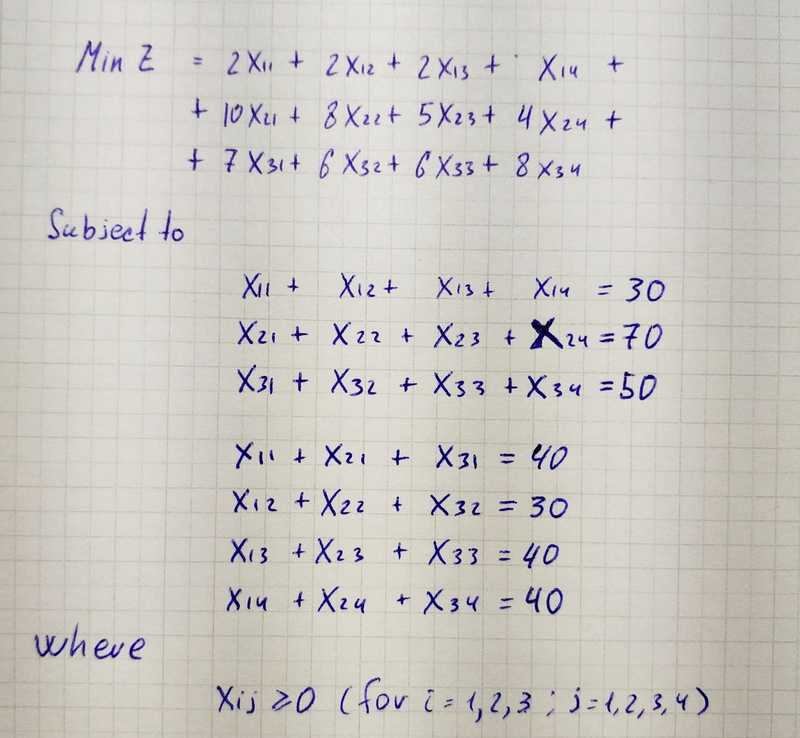 Min Z = 2X11 + 2X12 + 2X13 + X14 +
+ 10X21 + 8X22 + 5X23 + 4X24 +
+ 7X31 + 6X32 + 6X33 + 8X34
Subject to
X11 + X12 + X13 + X14 = 30
X21 + X22 + X23 + X24 = 70
X31 + X32 + X33 + X34 = 50
X11 + X21 + X31 = 40
X12 + X22 + X32 = 30
X13 + X23 + X33 = 40
X14 + X24 + X34 = 40
where
Xij ≥ 0 (for i = 1,2,3 ; j = 1,2,3,4)